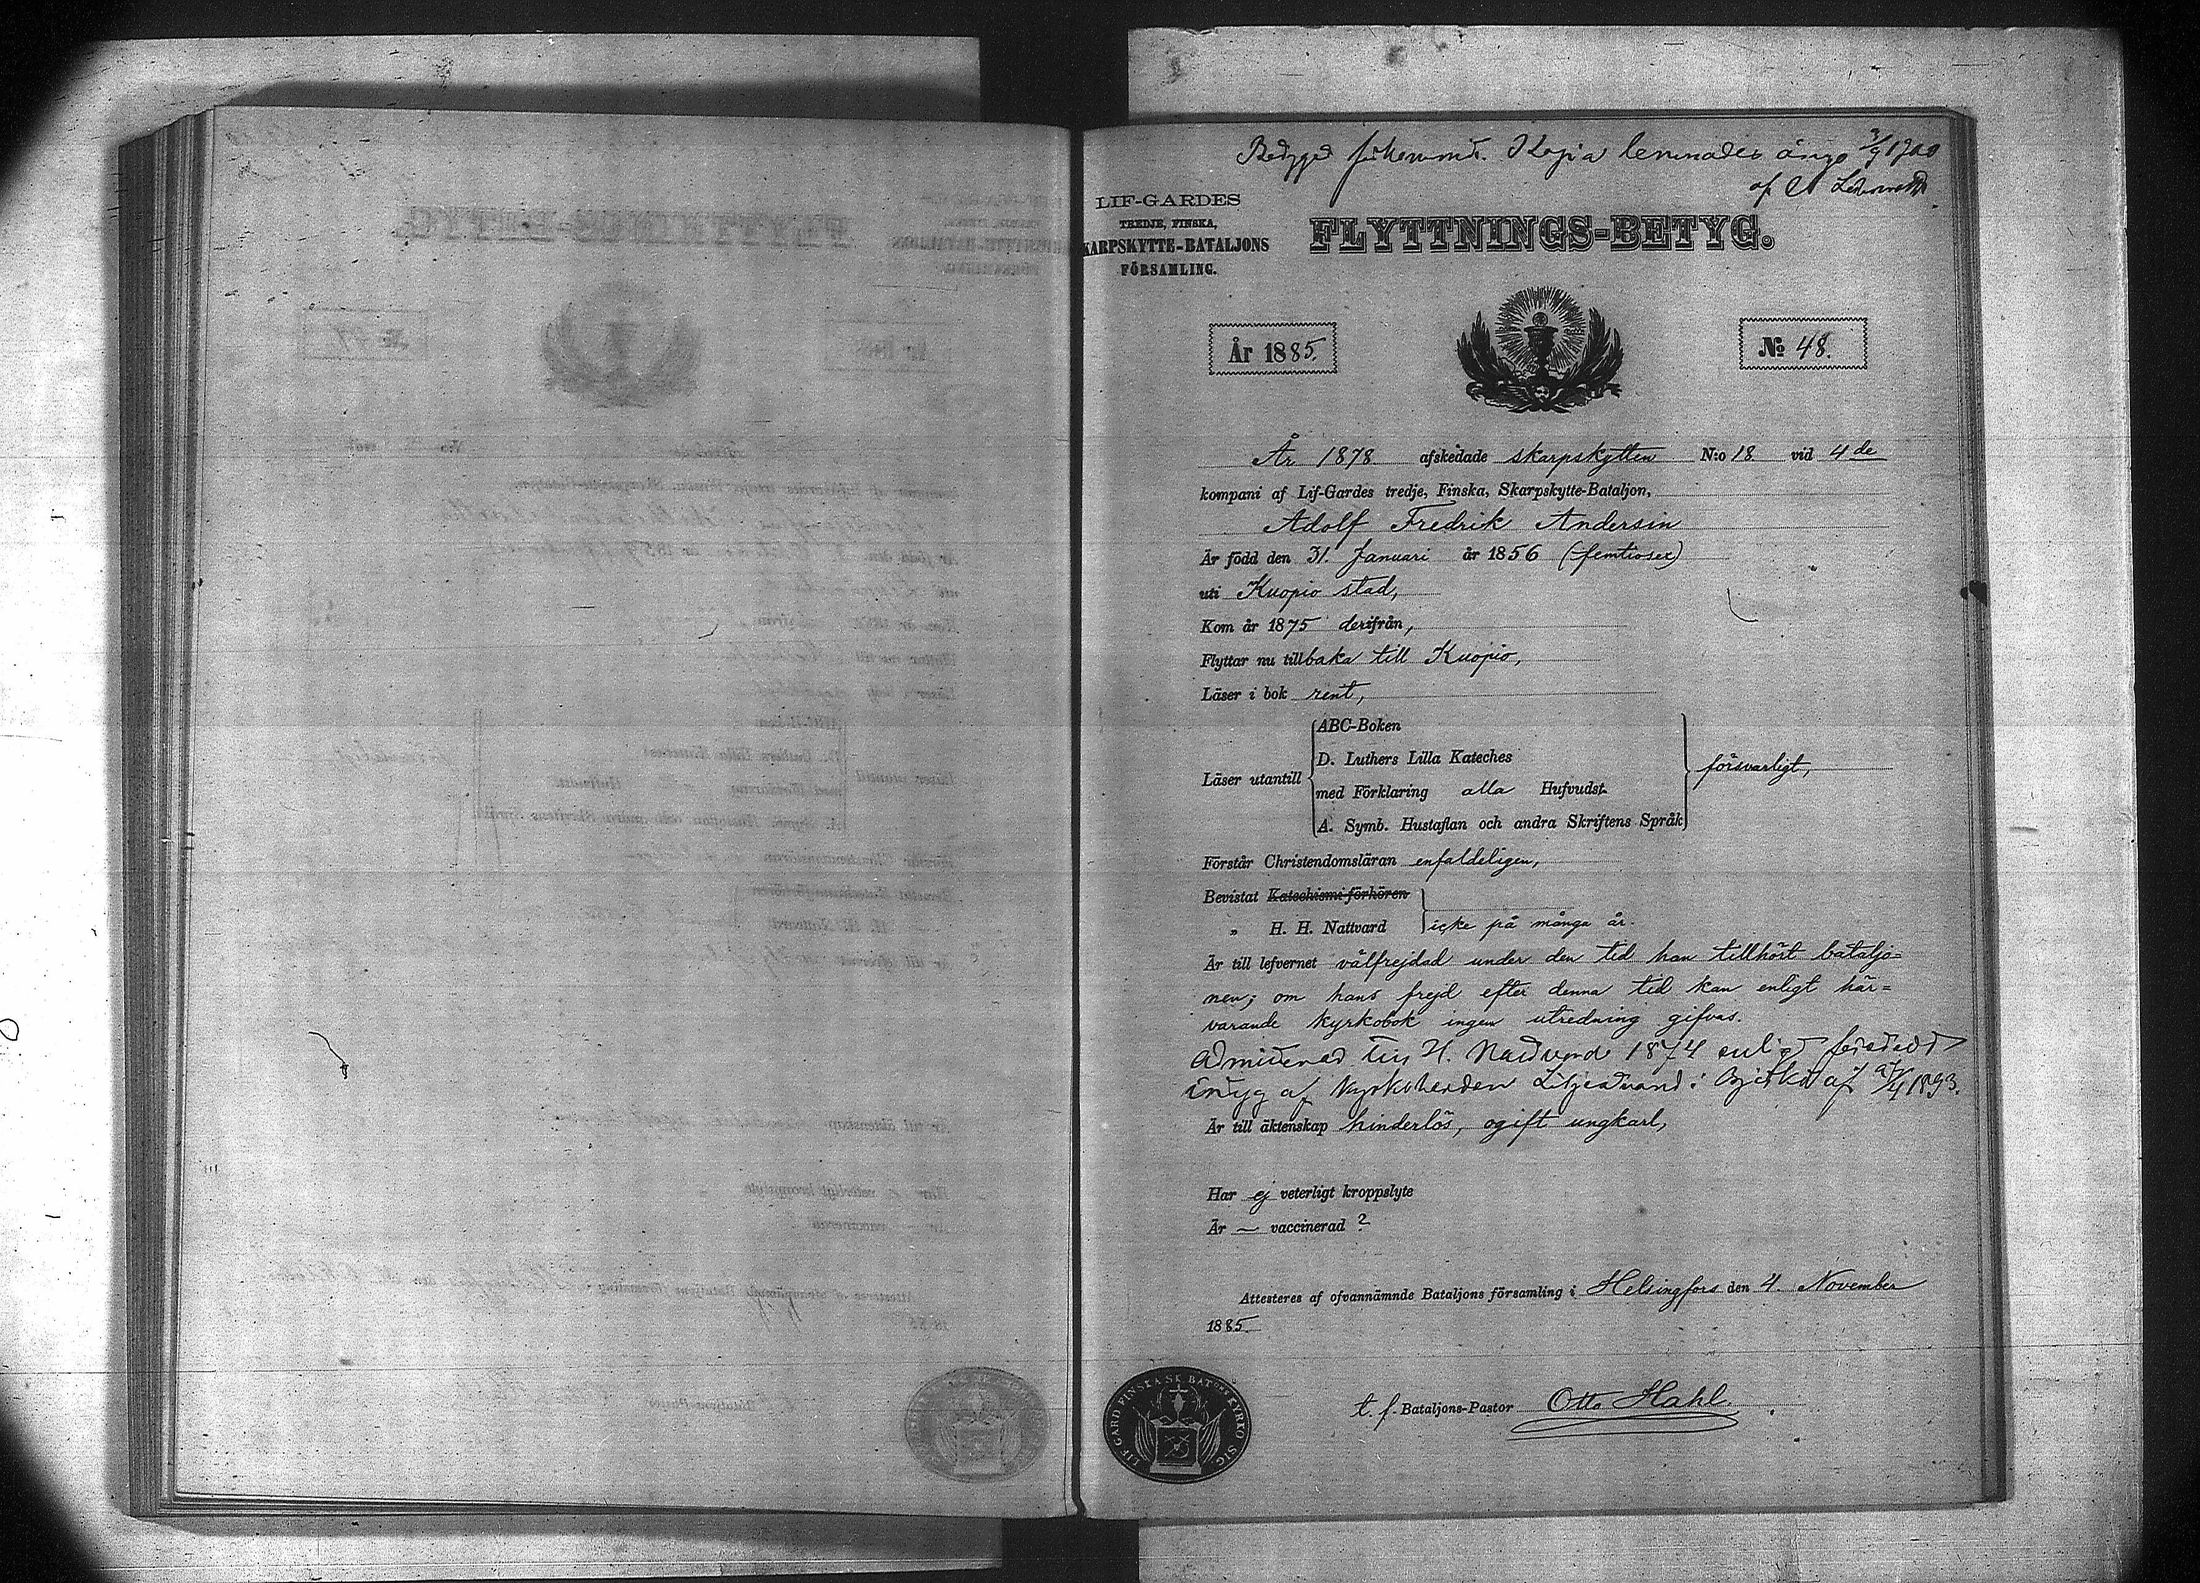 Betyget Kopia lemnades 3/9 1900
af
LIF-GARDES
TREDJE, FINSKA,
KARPSKYTTE-BATALJONS
FÖRSAMLING.
FLYTTNINGS-BETYG.
År 1885.
No 48.
År 1878 afskedade skarpskytten N:o 18 vid 4de
kompani af Lif-Gardes tredje, Finska, Skarpskytte-Bataljon,
Adolf Fredrik Andersin
Är född den 31. Januari år 1856 (femtiosex)
uti Kuopio stad,
Kom år 1875 derifrån,
Flyttar nu tillbaka till Kuopio,
Läser i bok rent,
ABC-Boken
D. Luthers Lilla Kateches
Läser utantill med Förklaring alla Hufvudst. försvarligt,
A. Symb. Hustaflan och andra Skriftens Språk
Förstår Christendomsläran enfaldeligen,
Bevistat Katechismi förhören
„ H. H. Nattvard icke på många år.
Är till lefvernet välfrejdad under den tid han tillhört bataljo=
nen; om hans frejd efter denna tid kan enligt här=
varande kyrkobok ingen utredning gifvas.
Admitterad till H. Nattvard 1874 enligt företedt
betyg af Kyrkoherden Liljestrand i Björkö af 4 1893.
Är till äktenskap hinderlös, ogift ungkarl,
Har ej veterligt kroppslyte
Är — vaccinerad ?
Attesteras af ofvannämnde Bataljons församling i Helsingfors den 4. November
1885.
t. f. Bataljons-Pastor Otto Hahl.
LIF GARD FINSKA SK BAT KYRKO SIG